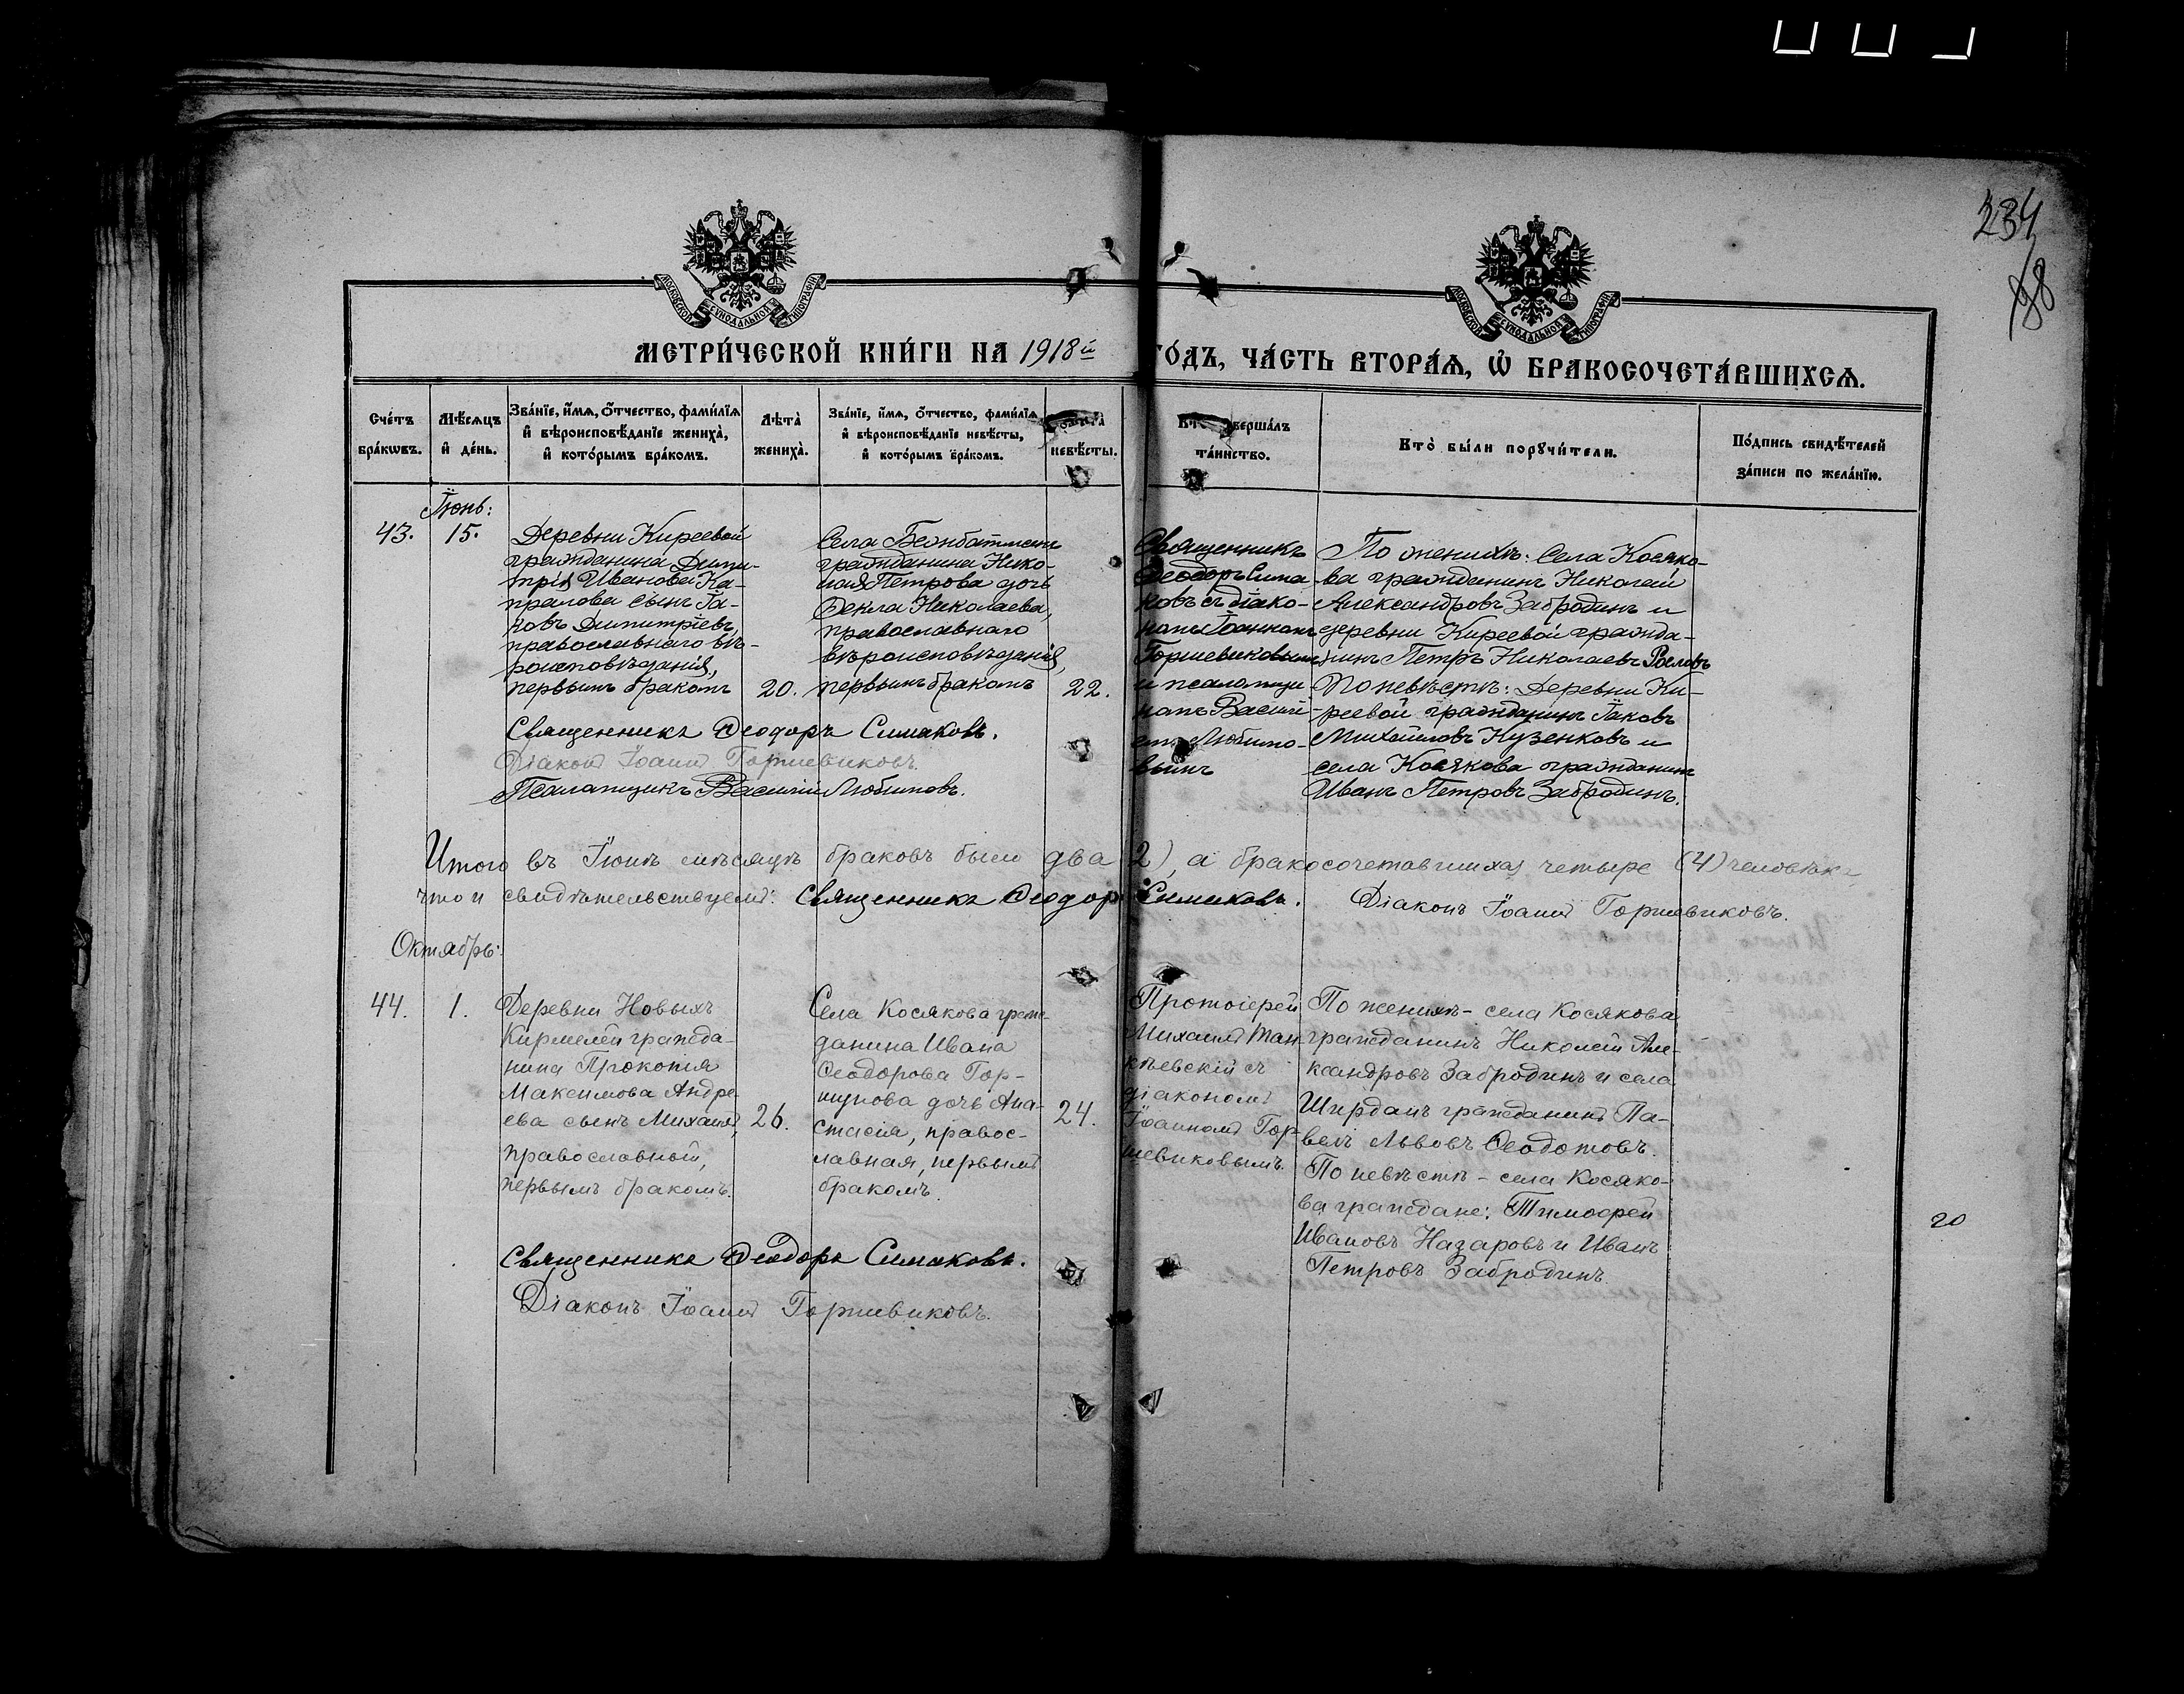 234
98
МОСКОВСКОЙ СУНОДАЛЬНОЙ ТИПОГРАФІИ
МОСКОВСКОЙ СУНОДАЛЬНОЙ ТИПОГРАФІИ
МЕТРИ́ЧЕСКОЙ КНИ́ГИ НА 1918й ГО́ДЪ, ЧА́СТЬ ВТОРА́Ѧ, Ѡ҆ БРАКОСОЧЕТА́ВШИХСѦ.
Сче́тъ бра́кѡвъ.
Мѣ́сяцъ и҆ де́нь.
Зва́нїе, и҆́мѧ, ѻ҆́тчество, фами́лїѧ
и҆ вѣроисповѣ́данїе жениха̀,
и҆ кото́рымъ бра́комъ.
Лѣта̀ жениха̀.
Зва́нїе, и҆́мѧ, ѻ҆́тчество, фами́лїѧ
и҆ вѣроисповѣ́данїе невѣ́сты,
и҆ кото́рымъ бра́комъ.
невѣ́сты.
та́инство.
Кто̀ бы́ли порꙋчи́тели.
По́дпись свидѣ́телей
за́писи по жела́нїю.
Їюнь:
43.
15.
Деревни Киреевой
гражданина Дими-
трія Иванова Ка-
пралова сынъ Іа-
ковъ Димитріевъ,
православнаго вѣ-
роисповѣданія,
первымъ бракомъ
20.
Села
гражданина Нико-
лая Петрова дочь
Ѳекла Николаева,
православнаго
вѣроисповѣданія,
первымъ бракомъ
22.
Священникъ
Ѳеодоръ Сима-
ковъ съ діако-
номъ Іоанномъ
Горшевиковымъ
и псаломщи-
комъ Василі-
емъ Любимо-
вымъ
По женихѣ: Села Косяко-
ва гражданинъ Николай
Александровъ Забродинъ и
деревни Киреевой гражда-
нинъ Петръ Николаевъ
По невѣстѣ: Деревни Ки-
реевой гражданинъ Іаковъ
Михайловъ Кузенковъ и
села Косякова гражданинъ
Иванъ Петровъ Забродинъ.
Священникъ Ѳеодоръ Симаковъ.
Діаконъ Іоаннъ Горшевиковъ.
Псаломщикъ Василій Любимовъ.
Итого въ Їюнѣ мѣсяцѣ браковъ было два (2), а бракосочетавшихся четыре (4) человѣка,
что и свидѣтельствуемъ: Священникъ Ѳеодоръ Симаковъ. Діаконъ Іоаннъ Горшевиковъ.
Октябрь:
44.
1.
Деревни Новыхъ
Кирмелей гражда-
нина Прокопія
Максимова Андре-
ева сынъ Михаилъ,
православный,
первымъ бракомъ.
26.
Села Косякова граж-
данина Ивана
Ѳеодорова Гор-
шунова дочь Ана-
стасія, правос-
лавная, первымъ
бракомъ.
24.
Протоіерей
Михаилъ Ман-
кѣевскій съ
діакономъ
Іоанномъ Гор-
шевиковымъ.
По женихѣ - села Косякова
гражданинъ Николай Але-
ксандровъ Забродинъ и села
Ширданъ гражданинъ Па-
велъ Львовъ Ѳеодотовъ.
По невѣстѣ - села Косяко-
ва граждане: Тимоѳей
Ивановъ Назаровъ и Иванъ
Петровъ Забродинъ.
20
Священникъ Ѳеодоръ Симаковъ.
Діаконъ Іоаннъ Горшевиковъ.